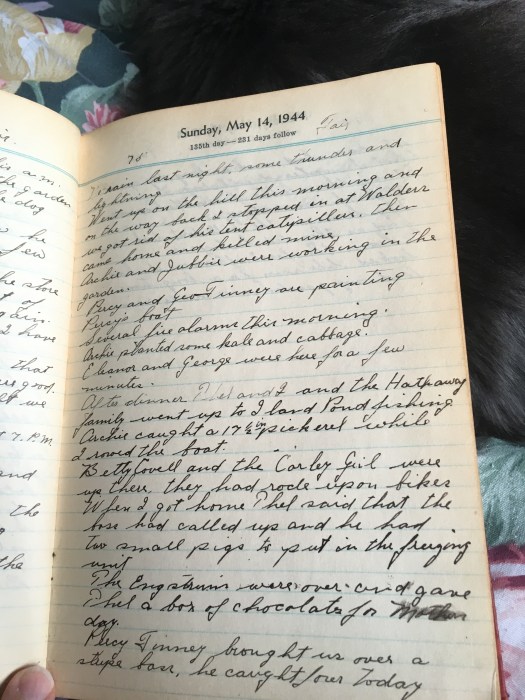 s.
is a.m.
the garden
e dog
s he
few
he store
t of
again.
I have
that
ere good.
lt we
t 7. P.M.
and
the
g
the
Sunday, May 14, 1944
135th day—231 days follow
75° Fair
rain last night, some thunder and
lightning.
Went up on the hill this morning and
on the way back I stopped in at Walders
we got rid of his tent catipillers, then
came home and killed mine.
Archie and Jubbie were working in the
garden.
Percy and Geo Tinney are painting
Percy's boat
Several fire alarms this morning.
Archie planted some kale and cabbage.
Eleanor and George were here for a few
minutes.
After dinner Phel and I and the Hathaway
family went up to Island Pond fishing
Archie caught a 17½ in pickerel while
I rowed the boat.
Betty Covell and the Corley Girl were
up there, they had rode upon bikes
When I got home Phel said that the
boss had called up and he had
two small pigs to put in the freezing
unit
The Engstroms were over and gave
Phel a box of chocolates for Mothers
day.
Percy Tinney brought us over a
stripe bass, he caught four today